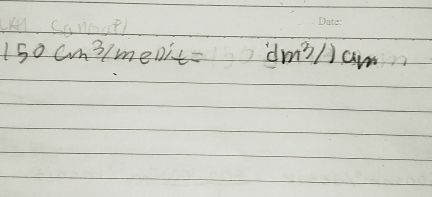 Date:
150 cm³/menit = dm³/jam